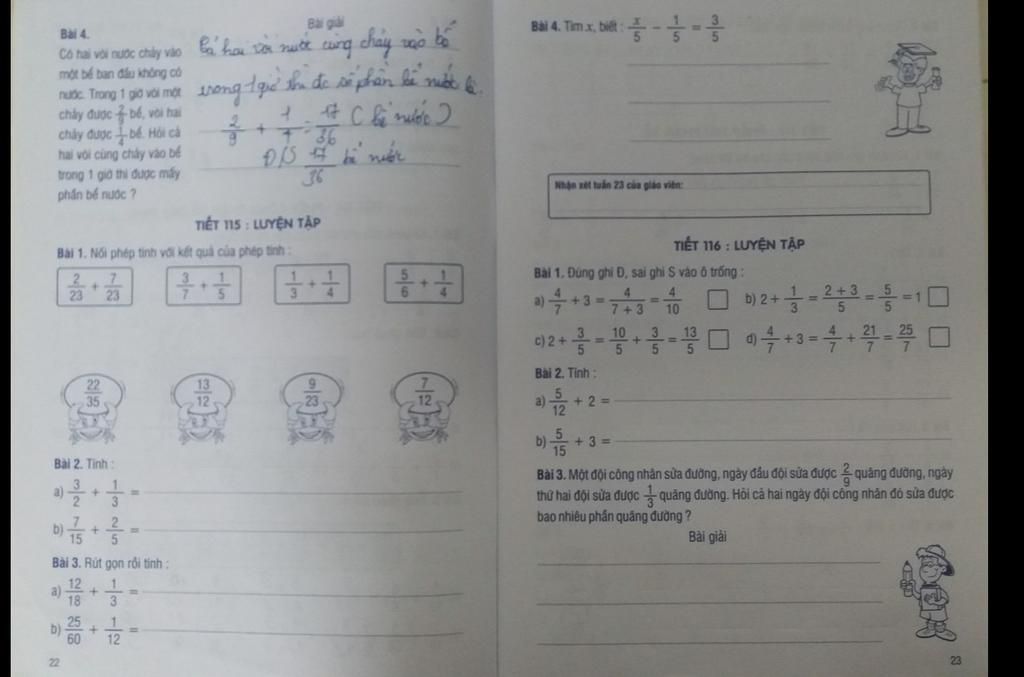 Bài 4.
Có hai vòi nước chảy vào
một bể ban đầu không có
nước. Trong 1 giờ vòi một
chảy được 2/9 bể, vòi hai
chảy được 1/4 bể. Hỏi cả
hai vòi cùng chảy vào bể
trong 1 giờ thì được mấy
phần bể nước ?
Bài giải
Cả hai vòi nước cùng chảy vào bể
trong 1 giờ thì đc số phần bể nước là:
2/9 + 1/4 = 17/36 ( bể nước )
Đ/S 17/36 bể nước
TIẾT 115 : LUYỆN TẬP
Bài 1. Nối phép tính với kết quả của phép tính :
2/23 + 7/23 3/7 + 1/5 1/3 + 1/4 5/6 + 1/4
22/35 13/12 9/23 7/12
Bài 2. Tính :
a) 3/2 + 1/3 =
b) 7/15 + 2/5 =
Bài 3. Rút gọn rồi tính :
a) 12/18 + 1/3 =
b) 25/60 + 1/12 =
22
Bài 4. Tìm x, biết : x/5 − 1/5 = 3/5
Nhận xét tuần 23 của giáo viên:
TIẾT 116 : LUYỆN TẬP
Bài 1. Đúng ghi Đ, sai ghi S vào ô trống :
a) 4/7 + 3 = 4/(7 + 3) = 4/10 b) 2 + 1/3 = (2 + 3)/5 = 5/5 = 1
c) 2 + 3/5 = 10/5 + 3/5 = 13/5 d) 4/7 + 3 = 4/7 + 21/7 = 25/7
Bài 2. Tính :
a) 5/12 + 2 =
b) 5/15 + 3 =
Bài 3. Một đội công nhân sửa đường, ngày đầu đội sửa được 2/9 quãng đường, ngày
thứ hai đội sửa được 1/3 quãng đường. Hỏi cả hai ngày đội công nhân đó sửa được
bao nhiêu phần quãng đường ?
Bài giải
23